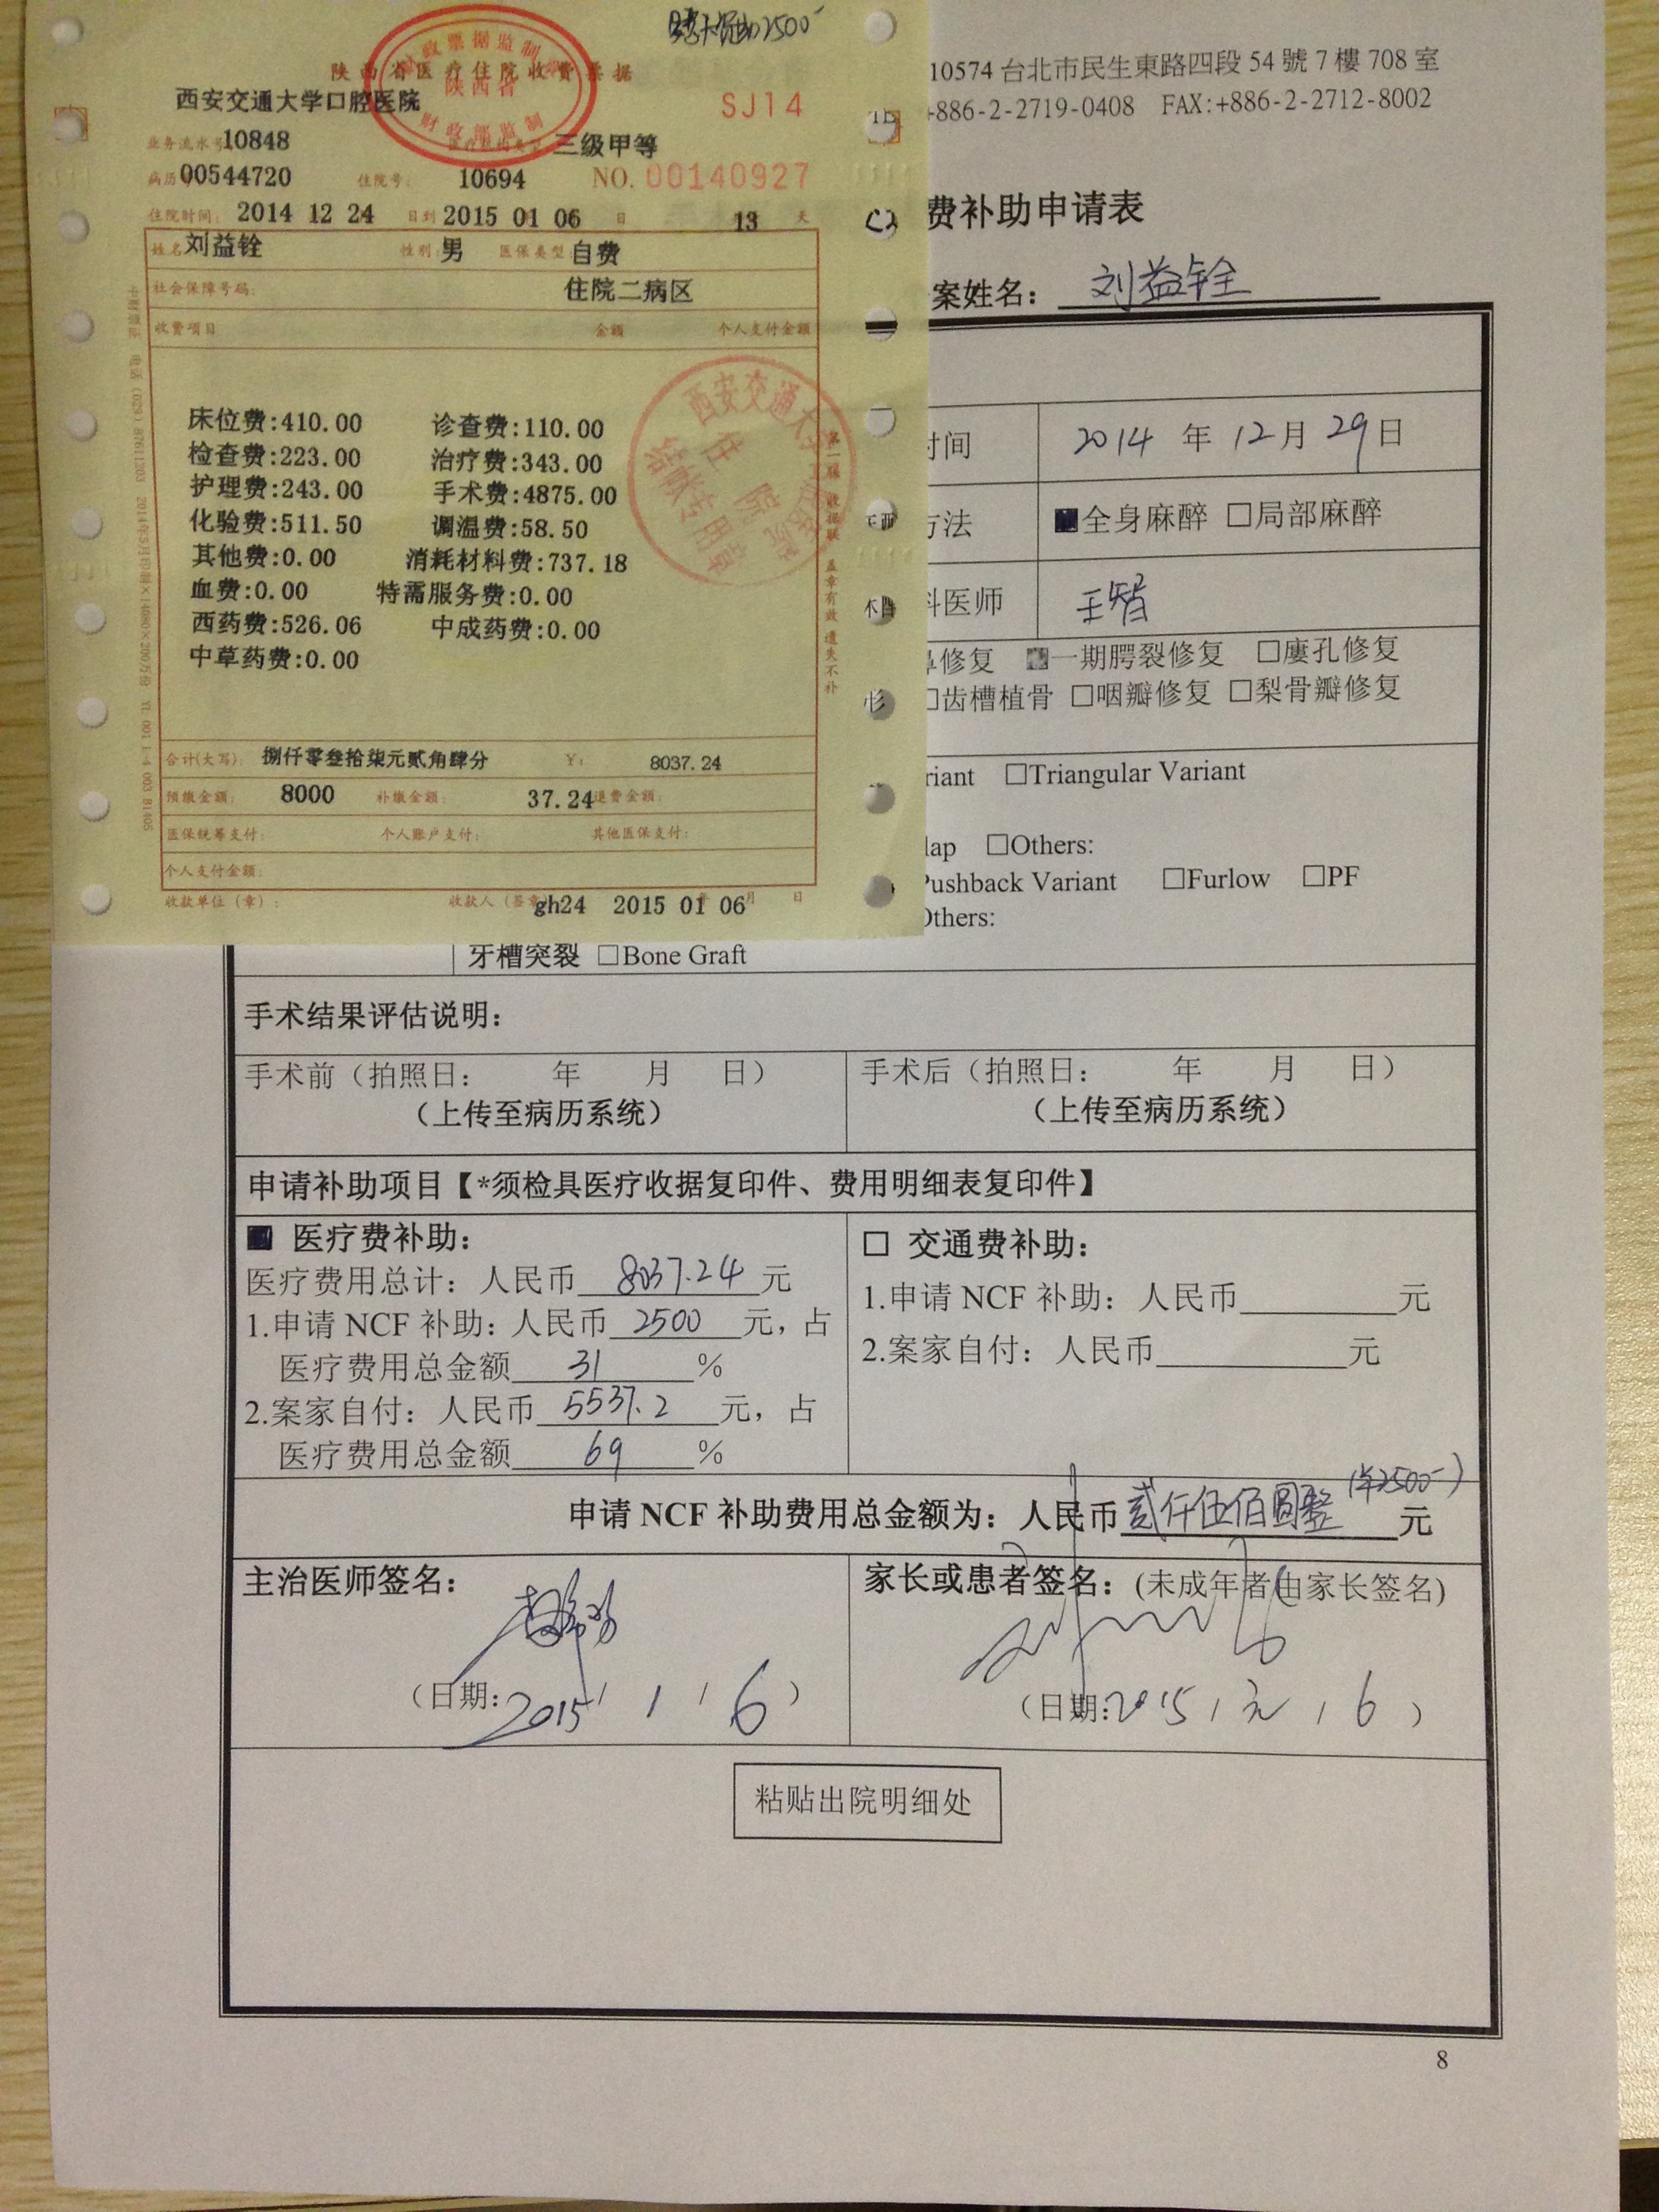 陕西省医疗住院收费票据
西安交通大学口腔医院
SJ14
业务流水号:10848
三级甲等
病历 00544720 住院号: 10694 NO. 00140927
住院时间: 2014 12 24 日到 2015 01 06 日 13 天
姓名 刘益铨 性别: 男 医保类型: 自费
社会保障号码: 住院二病区
收费项目 金额 个人支付金额
床位费:410.00 诊查费:110.00
检查费:223.00 治疗费:343.00
护理费:243.00 手术费:4875.00
化验费:511.50 调温费:58.50
其他费:0.00 消耗材料费:737.18
血费:0.00 特需服务费:0.00
西药费:526.06 中成药费:0.00
中草药费:0.00
合计(大写): 捌仟零叁拾柒元贰角肆分 ¥: 8037.24
预缴金额: 8000 补缴金额: 37.24 退费金额:
医保统筹支付: 个人账户支付: 其他医保支付:
个人支付金额:
收款单位(章): 收款人(签章) gh24 2015 01 06 月 日
陕西省
财政部监制
第二联 收据联 盖章有效 遗失不补
10574 台北市民生東路四段 54 號 7 樓 708 室
+886-2-2719-0408 FAX:+886-2-2712-8002
费补助申请表
案姓名: 刘益铨
时间 2014 年 12 月 29 日
方法 ■全身麻醉 □局部麻醉
科医师 王智
修复 ■一期腭裂修复 □廔孔修复
□齿槽植骨 □咽瓣修复 □梨骨瓣修复
riant □Triangular Variant
lap □Others:
Pushback Variant □Furlow □PF
Others:
牙槽突裂 □Bone Graft
手术结果评估说明:
手术前(拍照日: 年 月 日)
(上传至病历系统)
手术后(拍照日: 年 月 日)
(上传至病历系统)
申请补助项目【*须检具医疗收据复印件、费用明细表复印件】
■ 医疗费补助:
医疗费用总计: 人民币 8037.24 元
1.申请 NCF 补助: 人民币 2500 元, 占
医疗费用总金额 31 %
2.案家自付: 人民币 5537.2 元, 占
医疗费用总金额 69 %
□ 交通费补助:
1.申请 NCF 补助: 人民币 元
2.案家自付: 人民币 元
申请 NCF 补助费用总金额为: 人民币 贰仟伍佰圆整 (¥2500-) 元
主治医师签名:
(日期: 2015 / 1 / 6 )
家长或患者签名: (未成年者由家长签名)
(日期: 2015 / 元 / 6 )
粘贴出院明细处
8